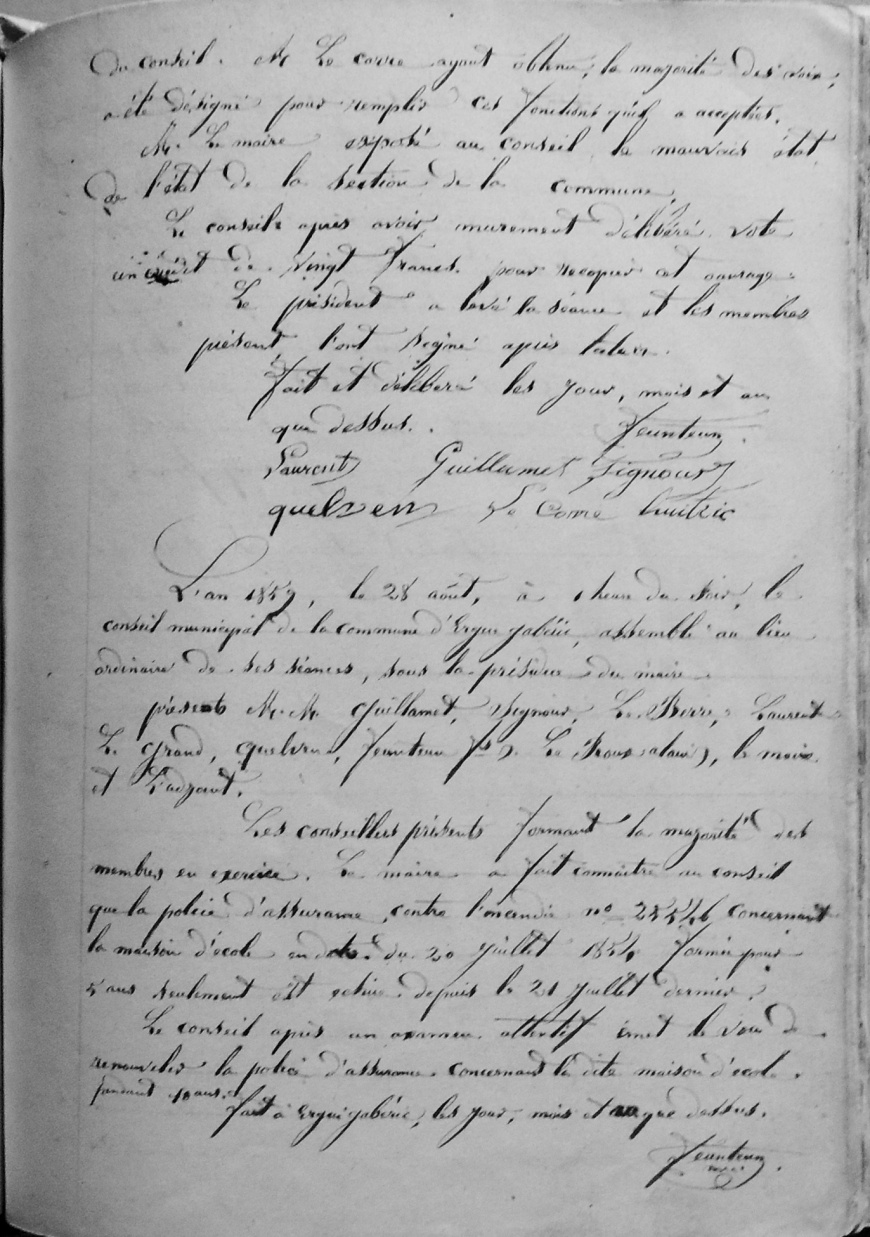 du conseil. M Le corre ayant obtenu, la majorité des voix,
a été désigné pour remplir ces fonctions qu'il a acceptées.
M. Le maire exposé au conseil le mauvais état
de l'état de la section de la commune.
Le conseil après avoir murement délibéré. vote
un crédit de vingt francs. pour recopier cet ouvrage.
Le président a levé la séance et les membres
présent l'ont signé après
fait et délibéré les jour, mois et an
que dessus. Feunteun
Laurent Guillamet Signour
quelven Le Corre Huitric
L'an 1859, le 28 août, à 1 heure du soir, le
conseil municipal de la commune d'Ergué gabéric, assemblé au lieu
ordinaire de ses séances, sous la présidence du maire
présents M.M. Guillamet, Signour, Le Berre, Laurent
Le Grand, quelven, Feunteun Le le maire
et l'adjoint.
Les conseillers présents formant la majorité des
membres en exercice. Le maire a fait connaître au conseil
que la police d'assurance, contre l'incendie no concernant
la maison d'école en date du 20 juillet 1854 formée pour
5 ans seulement est echue depuis le 21 juillet dernier.
Le conseil après un examen attentif émet le voeu de
renouveler la police d'assurance concernant la dite maison d'école.
pendant 10 ans.
fait à Ergué gabéric, les jour, mois et an que dessus.
Feunteun
maire